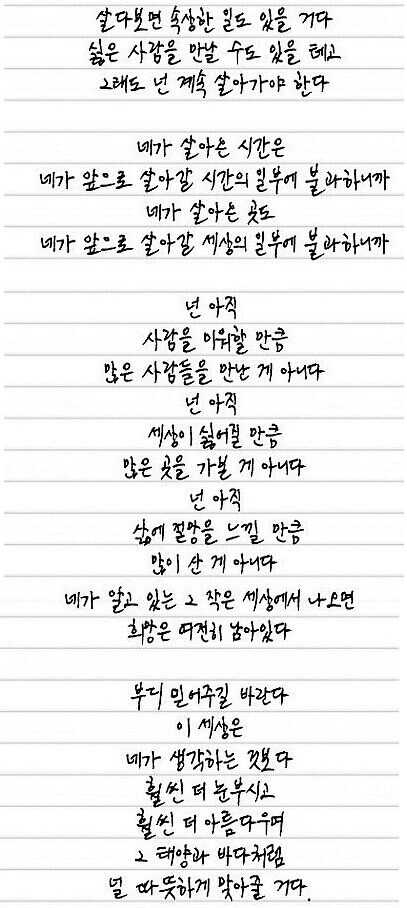 살다보면 속상한 일도 있을 거다
싫은 사람을 만날 수도 있을 테고
그래도 넌 계속 살아가야 한다
네가 살아온 시간은
네가 앞으로 살아갈 시간의 일부에 불과하니까
네가 살아온 곳도
네가 앞으로 살아갈 세상의 일부에 불과하니까
넌 아직
사람을 미워할 만큼
많은 사람들을 만난 게 아니다
넌 아직
세상이 싫어질 만큼
많은 곳을 가본 게 아니다
넌 아직
삶에 절망을 느낄 만큼
많이 산 게 아니다
네가 알고 있는 그 작은 세상에서 나오면
희망은 여전히 남아있다
부디 믿어주길 바란다
이 세상은
네가 생각하는 것보다
훨씬 더 눈부시고
훨씬 더 아름다우며
그 태양과 바다처럼
널 따뜻하게 맞아줄 거다.